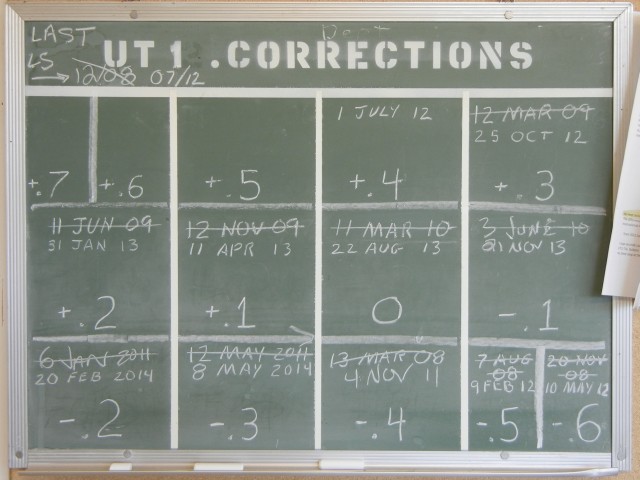 LAST
UT1 .CORRECTIONS
LS
→ 12/08 07/12
+.7
+.6
+.5
1 JULY 12
+.4
12 MAR 09
25 OCT 12
+.3
11 JUN 09
31 JAN 13
+.2
12 NOV 09
11 APR 13
+.1
11 MAR 10
22 AUG 13
0
3 JUNE 10
21 NOV 13
-.1
6 JAN 2011
20 FEB 2014
-.2
12 MAY 2011
8 MAY 2014
-.3
13 MAR 08
4 NOV 11
-.4
7 AUG
08
9 FEB 12
-.5
20 NOV
08
10 MAY 12
-.6